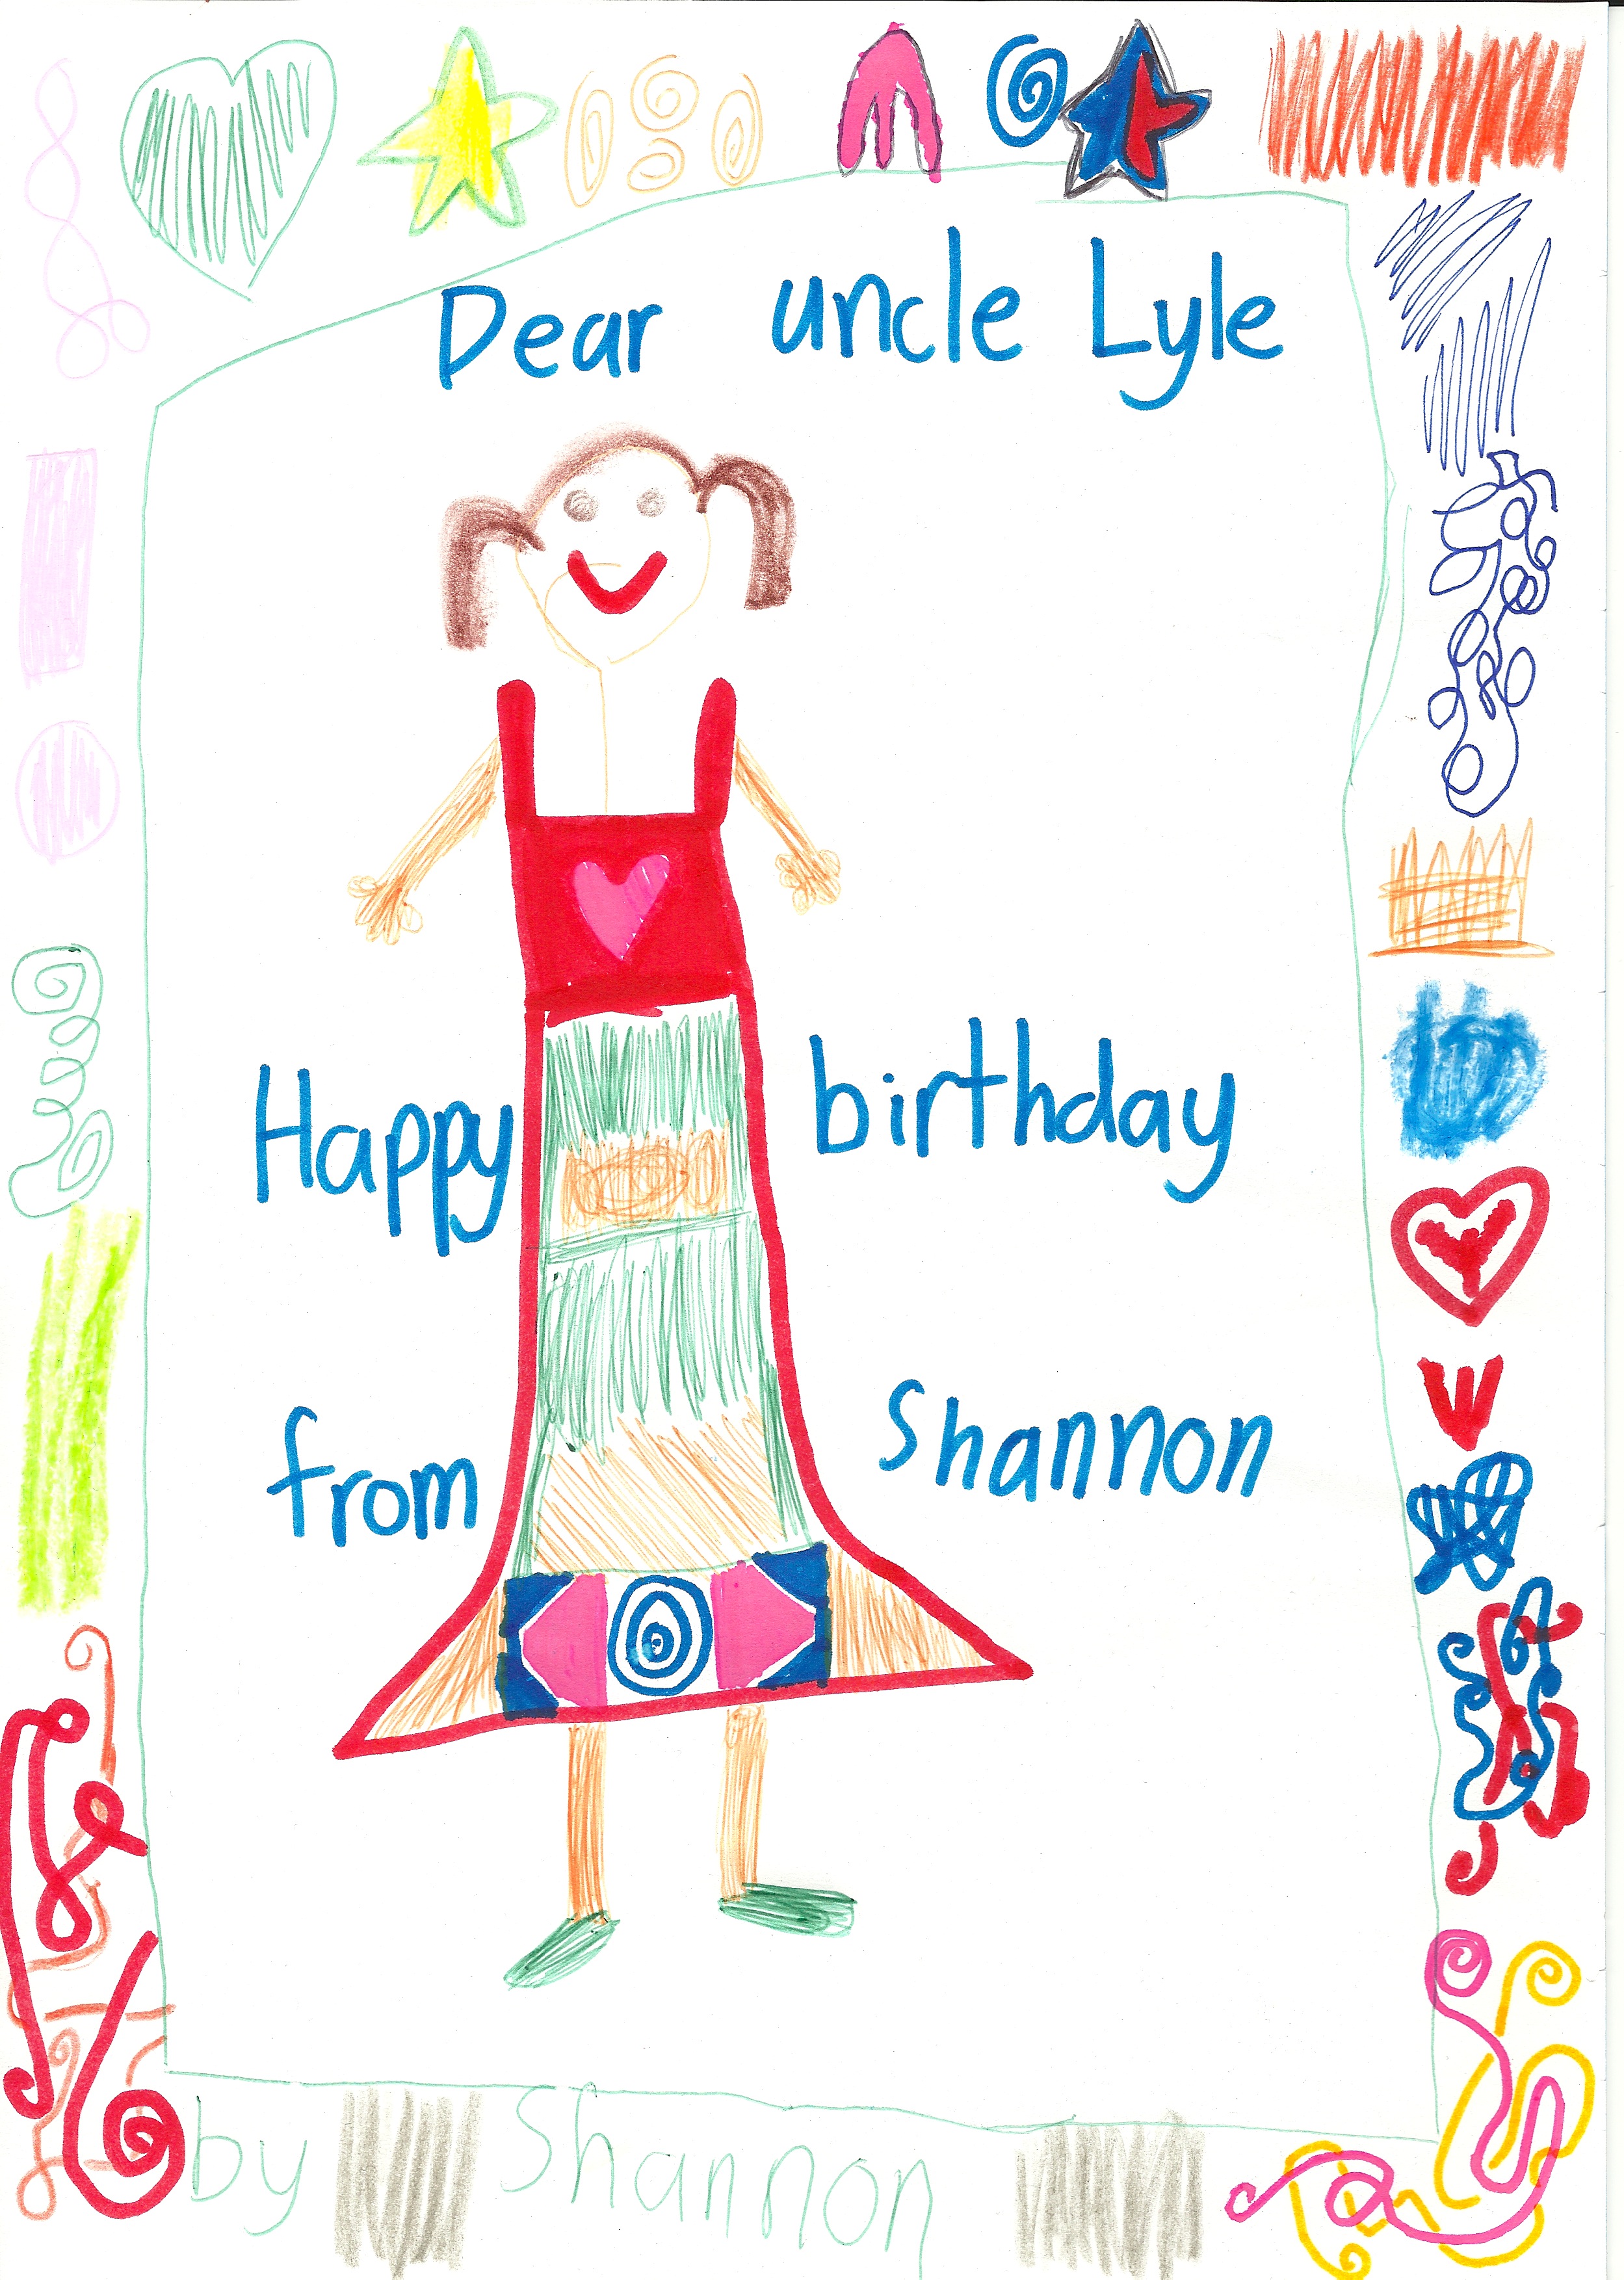 Dear uncle Lyle
Happy birthday
from Shannon
by Shannon